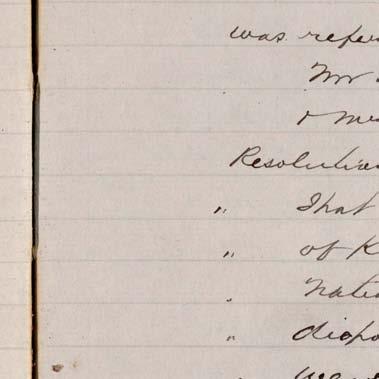 was refer
Mr
& M
Resolution
" That
" of K
" nati
" dispo